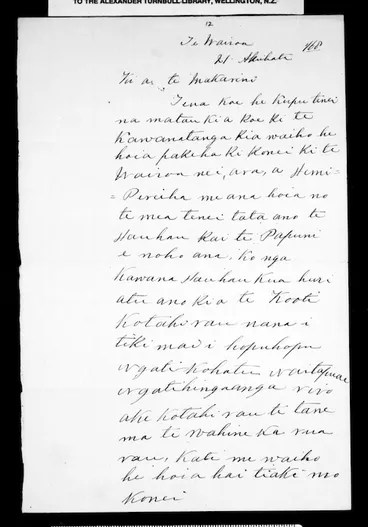 TO THE ALEXANDER TURNBULL LIBRARY, WELLINGTON, N.Z.
12
Te Wairoa 168
21 Akuhata
Kia te Makarini
Tena koe he kupu tenei
na matau kia koe ki te
Kawanatanga kia waiho he
hoia pakeha ki konei ki te
Wairoa nei, ara, a Himi=
=Pereiha me ana hoia no
te mea tenei tata ano te
Hauhau kai te Papuni
e noho ana, ko nga
Kawana Hauhau kua huri
atu ano kia te Kooti
Kotahi rau nana i
tiki mai i hopuhopu
Ngatikohatu Waitapuae
Ngatihingaanga riro
ake kotahi rau ti tane
ma te wahine ka rua
rau, Kati me waiho
he hoia hai tiaki mo
konei